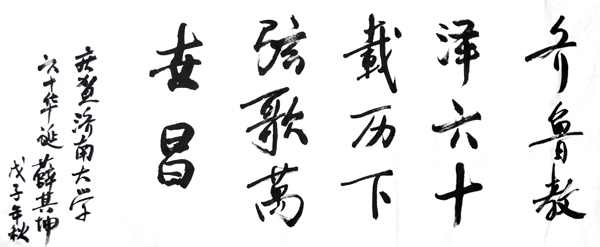 齐鲁教
泽六十
載历下
弦歌萬
世昌
庆賀济南大学
六十华诞 薛其坤
戊子年秋